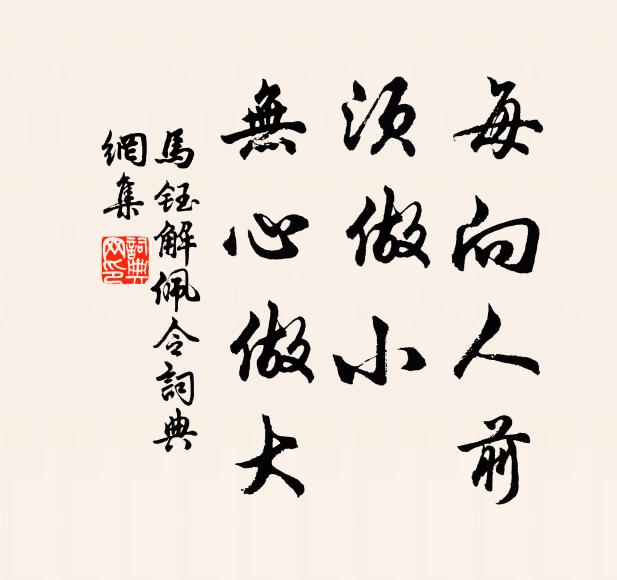 每向人前
須做小
無心做大
馬鈺解佩令詞典
網集
詞典
网印